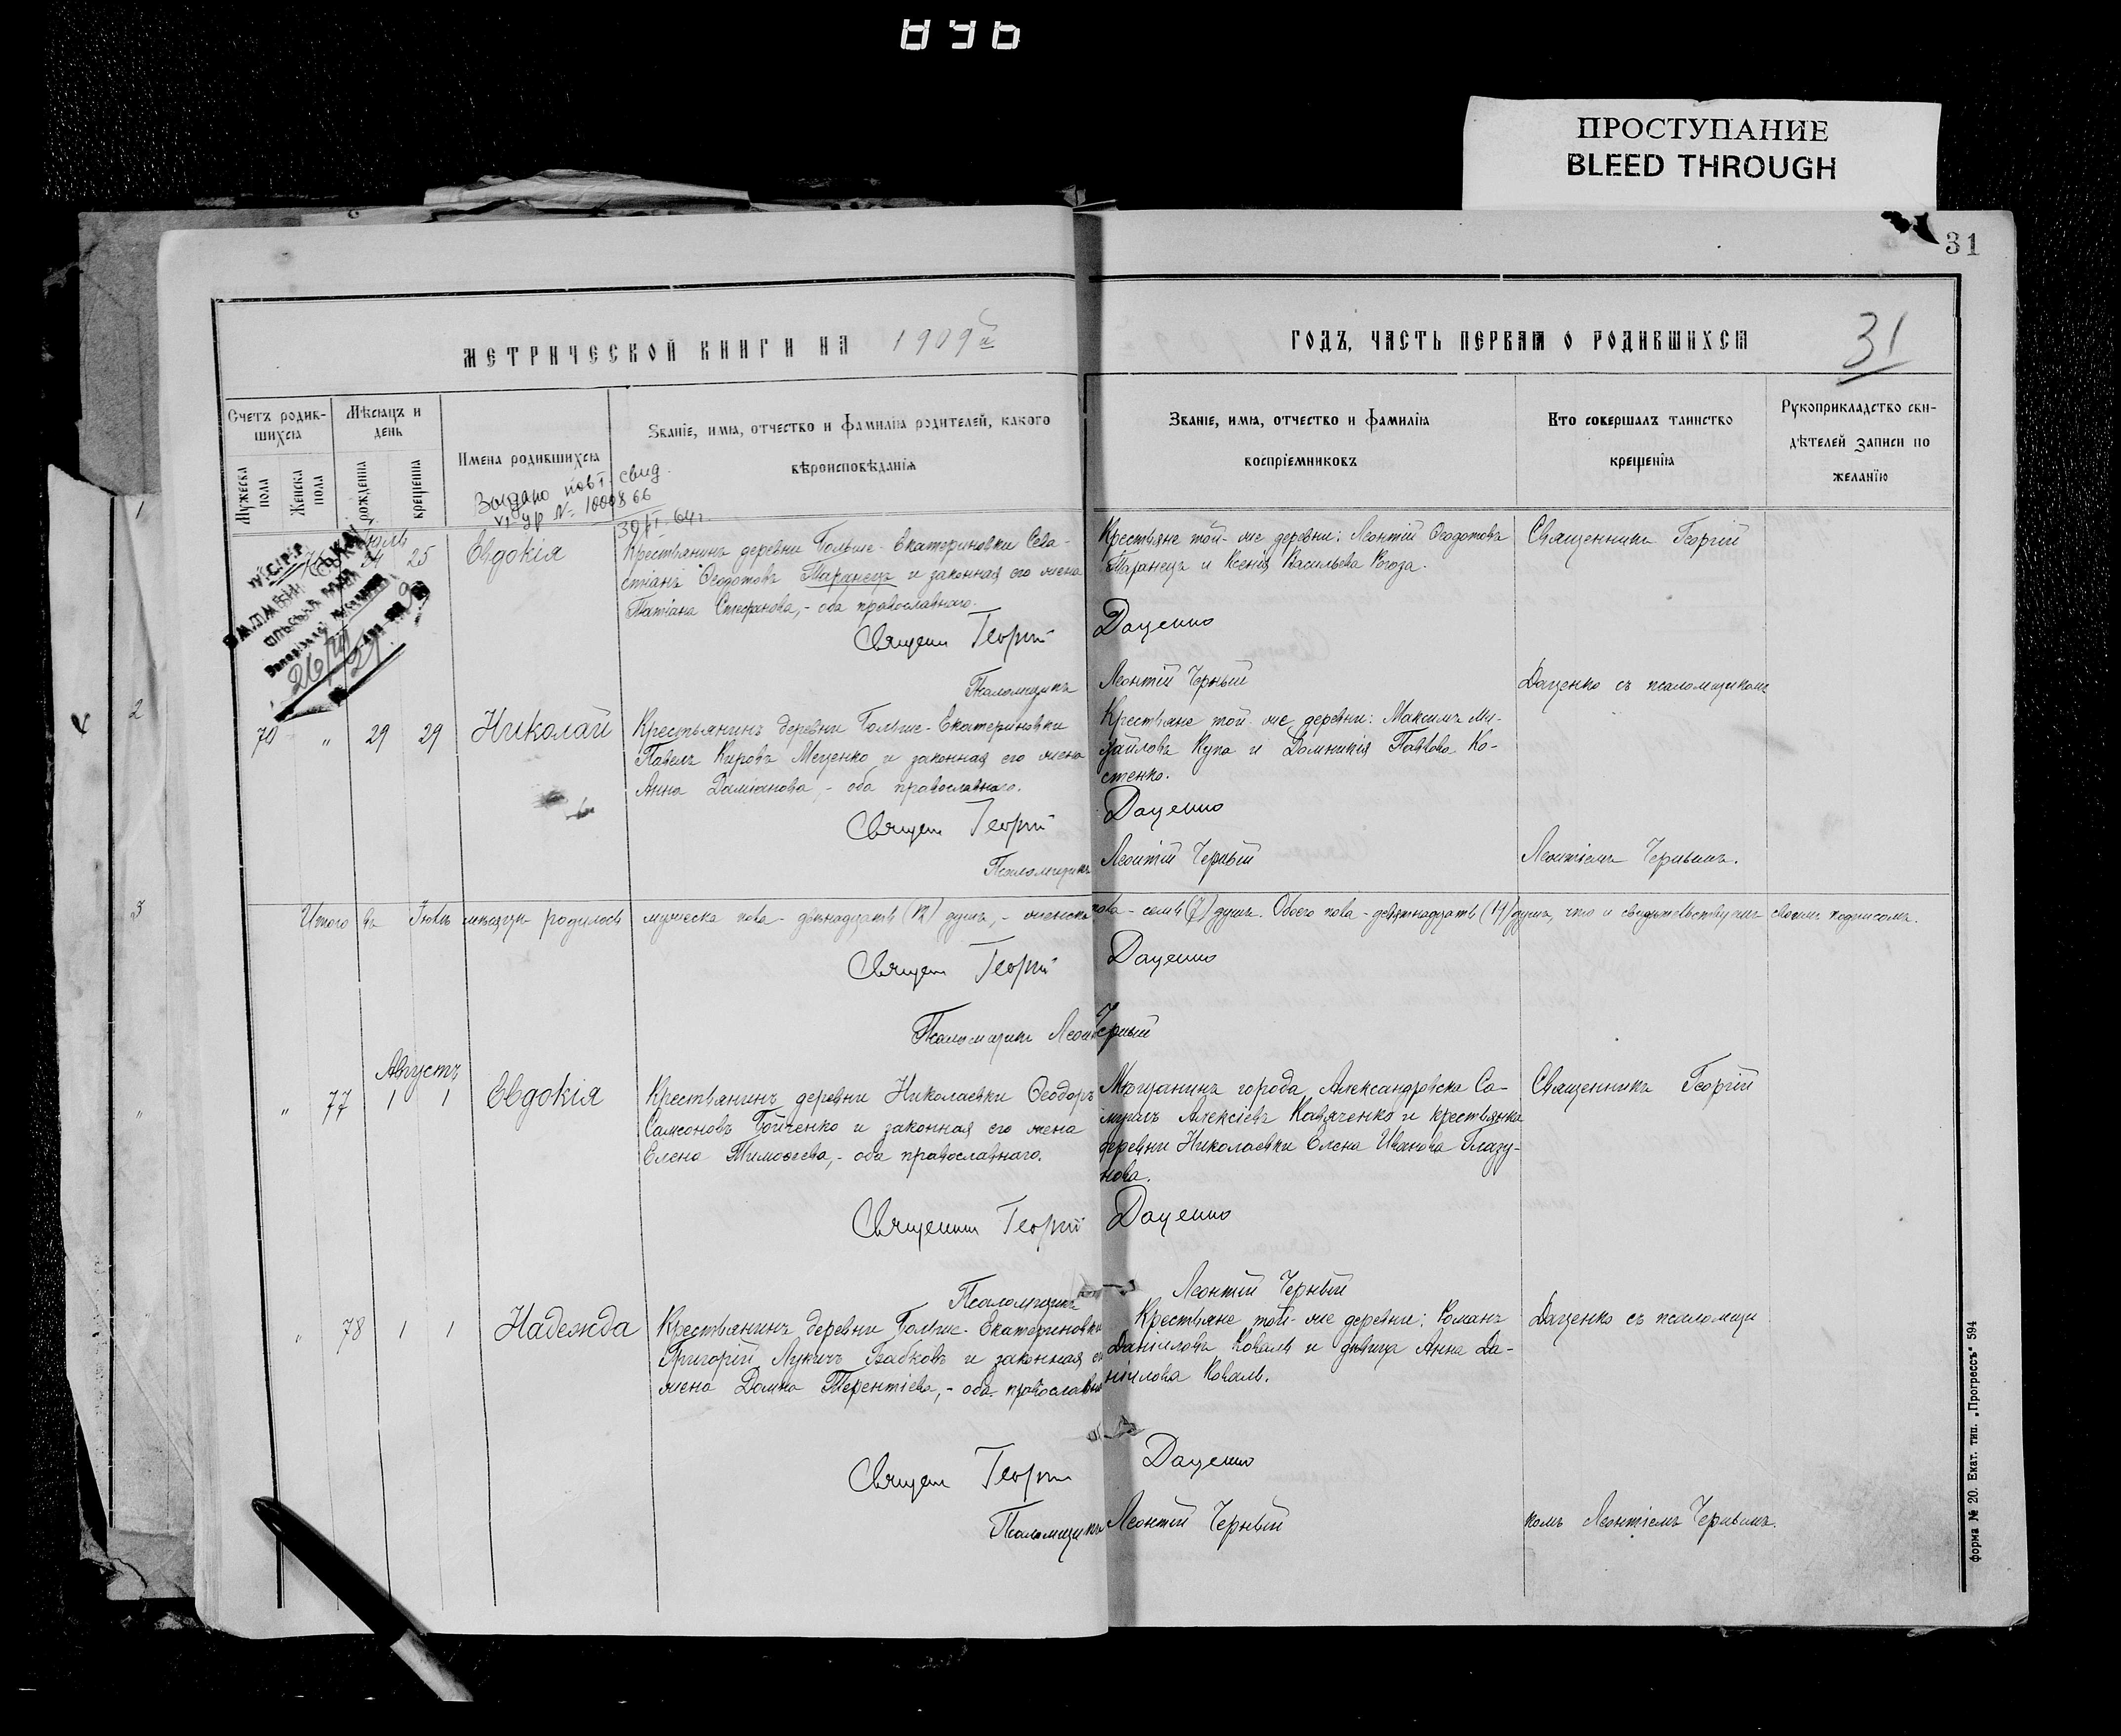 896
ПРОСТУПАНИЕ
BLEED THROUGH
31
МЕТРИЧЕСКОЙ КНИГИ НА 1909й
ГОДЪ, ЧАСТЬ ПЕРВАЯ О РОДИВШИХСЯ
31
Счетъ родив-
шихся
Мужеска пола
Женска пола
Мѣсяцъ и
день
рожденія
крещенія
Имена родившихся
Званіе, имя, отчество и фамилія родителей, какого
вѣроисповѣданія
Званіе, имя, отчество и фамилія
воспріемниковъ
Кто совершалъ таинство
крещенія
Рукоприкладство сви-
дѣтелей записи по
желанію
свид.
Іюль
24 25 Евдокія
Крестьянинъ деревни Больше-Екатериновки Сева-
стіанъ Ѳеодотовъ Таранецъ и законная его жена
Татіана Стефанова,- оба православнаго.
Крестьяне той-же деревни: Леонтій Ѳеодотовъ
Таранецъ и Ксенія Васильева Рогоза.
Священникъ Георгій
Священ Георгій Даценко
Псаломщикъ Леонтій Черный
Даценко съ псаломщикомъ
70 " 29 29 Николай
Крестьянинъ деревни Больше-Екатериновки
Павелъ Кировъ Меценко и законная его жена
Анна Даміанова,- оба православнаго.
Крестьяне той-же деревни: Максимъ Ми-
хайловъ Купа и Домникія Павлова Ко-
стенко.
Священ Георгій Даценко
Псаломщикъ Леонтій Черный
Леонтіемъ Чернымъ.
Итого въ Іюлѣ мѣсяцѣ родилось мужеска пола - двѣнадцать (12) душъ,- женска пола - семь (7) душъ. Обоего пола - девятнадцать (19) душъ, что и свидѣтельствуемъ своимъ подписомъ.
Священ Георгій Даценко
Псаломщикъ Леонтій Черный
Августъ
" 77 1 1 Евдокія
Крестьянинъ деревни Николаевки Ѳеодоръ
Самсоновъ Бойченко и законная его жена
Елена Тимоѳеева,- оба православнаго.
Мѣщанинъ города Александровска Са-
муилъ Алексіевъ Кавяченко и крестьянка
деревни Николаевки Елена Иванова Глазу-
нова.
Священникъ Георгій
Священник Георгій Даценко
Псаломщикъ Леонтій Черный
" 78 1 1 Надежда
Крестьянинъ деревни Больше-Екатериновки
Григорій Лукичъ Бабковъ и законная его
жена Домна Терентіева,- оба православнаго
Крестьяне той-же деревни: Романъ
Даніиловъ Коваль и дѣвица Анна Да-
ніилова Коваль.
Даценко съ псаломщи
Священ Георгій Даценко
Псаломщикъ Леонтій Черный
комъ Леонтіемъ Чернымъ.
форма № 20. Екат. тип. „Прогрессъ" 594
1
2
3